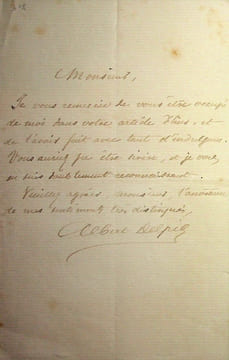 Monsieur,
Je vous remercie de vous être occupé
de moi dans votre article d'hier, et
de l'avoir fait avec tant d'indulgence.
Vous auriez pu être sévère, et je vous
en suis doublement reconnaissant.
Veuillez agréer, monsieur, l'assurance
de mes sentiments très distingués,
Albert Delpit